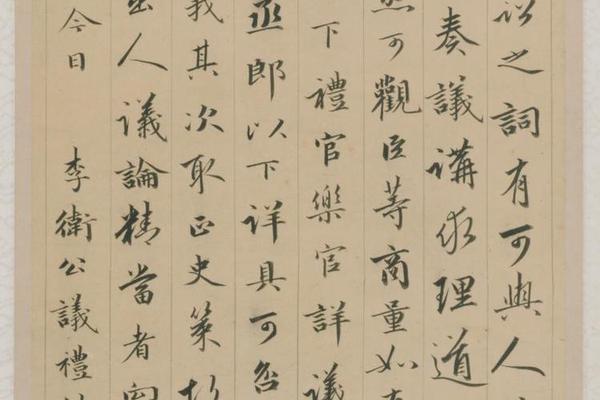 之詞有可與人
奏議講求理道
可觀臣等商量如
下禮官樂官詳議
丞郎以下詳具可否
其次取正史策
人議論精當者
今日 李衛公議禮